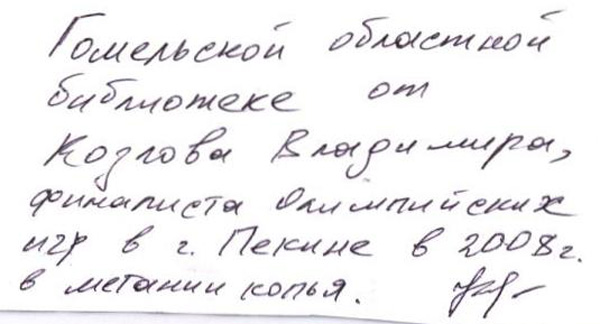 Гомельской областной
библиотеке от
Козлова Владимира,
финалиста Олимпийских
игр в г. Пекине в 2008г.
в метании копья.